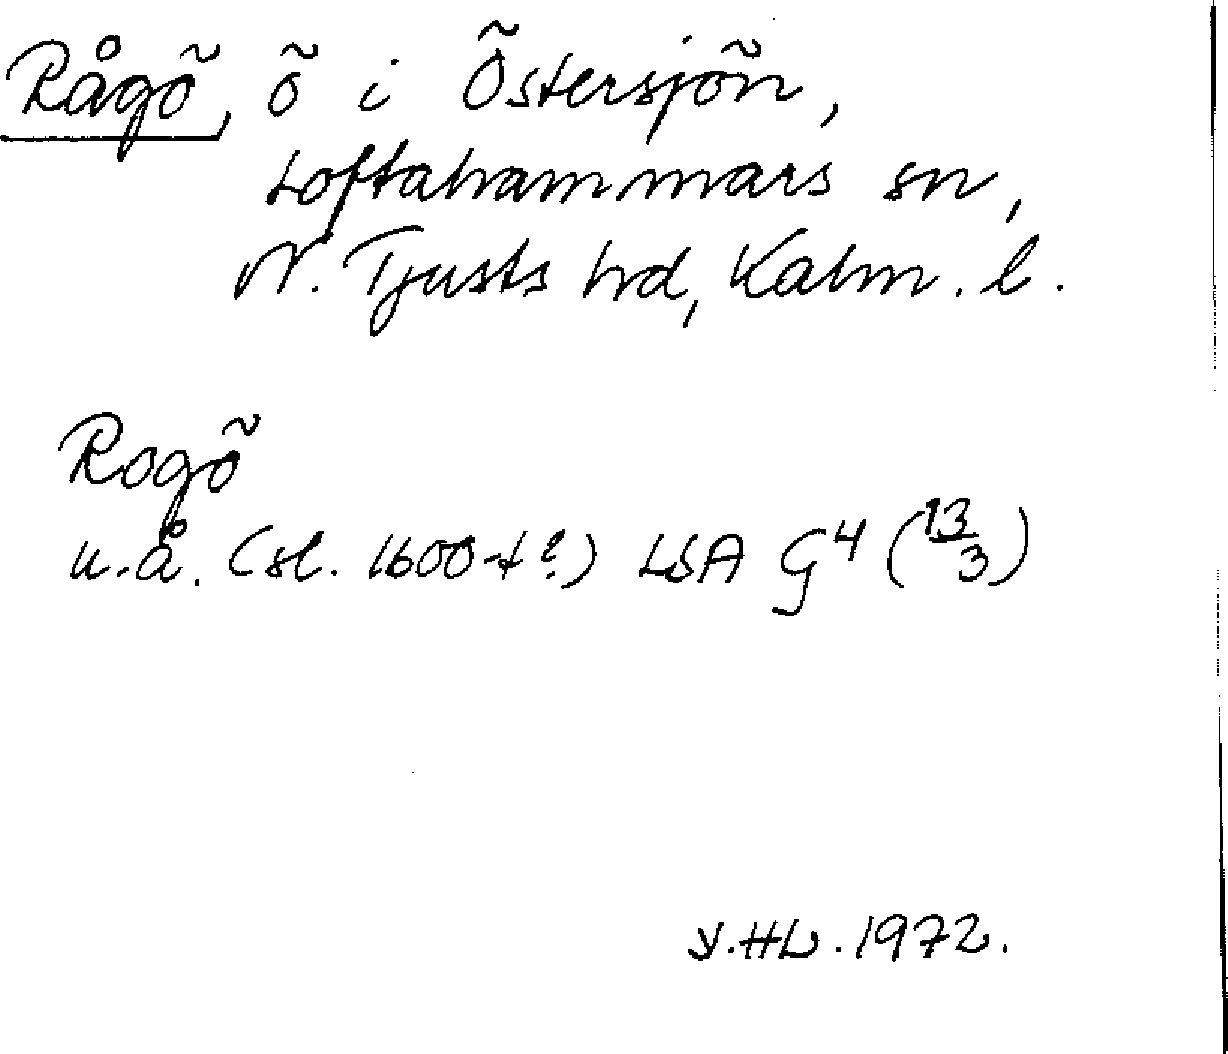 Rågö, ö i Östersjön,
Loftahammars sn,
N. Tjusts hd, Kalm. l.
Rogö
u.å. (sl. 1600-t?) LSA G4 (13/3)
Y.HL. 1972.